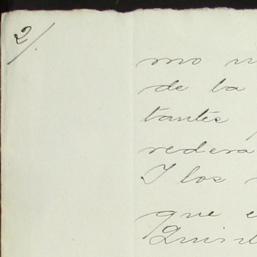 2/.
mo
de la
tantes
redera
I los
que e